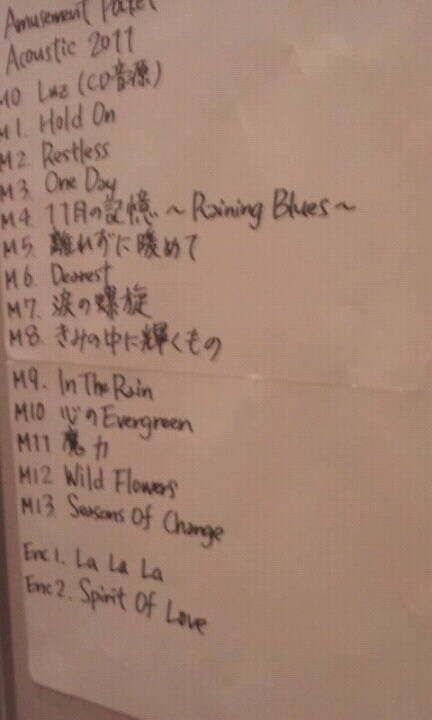 Amusement Pocket
Acoustic 2011
M0 Luz (CD音源)
M1. Hold On
M2. Restless
M3. One Day
M4. 11月の記憶 ~ Raining Blues ~
M5. 離れずに暖めて
M6. Dearest
M7. 涙の螺旋
M8. きみの中に輝くもの
M9. In The Rain
M10 心のEvergreen
M11 魔力
M12 Wild Flowers
M13. Seasons Of Change
Enc1. La La La
Enc2. Spirit Of Love